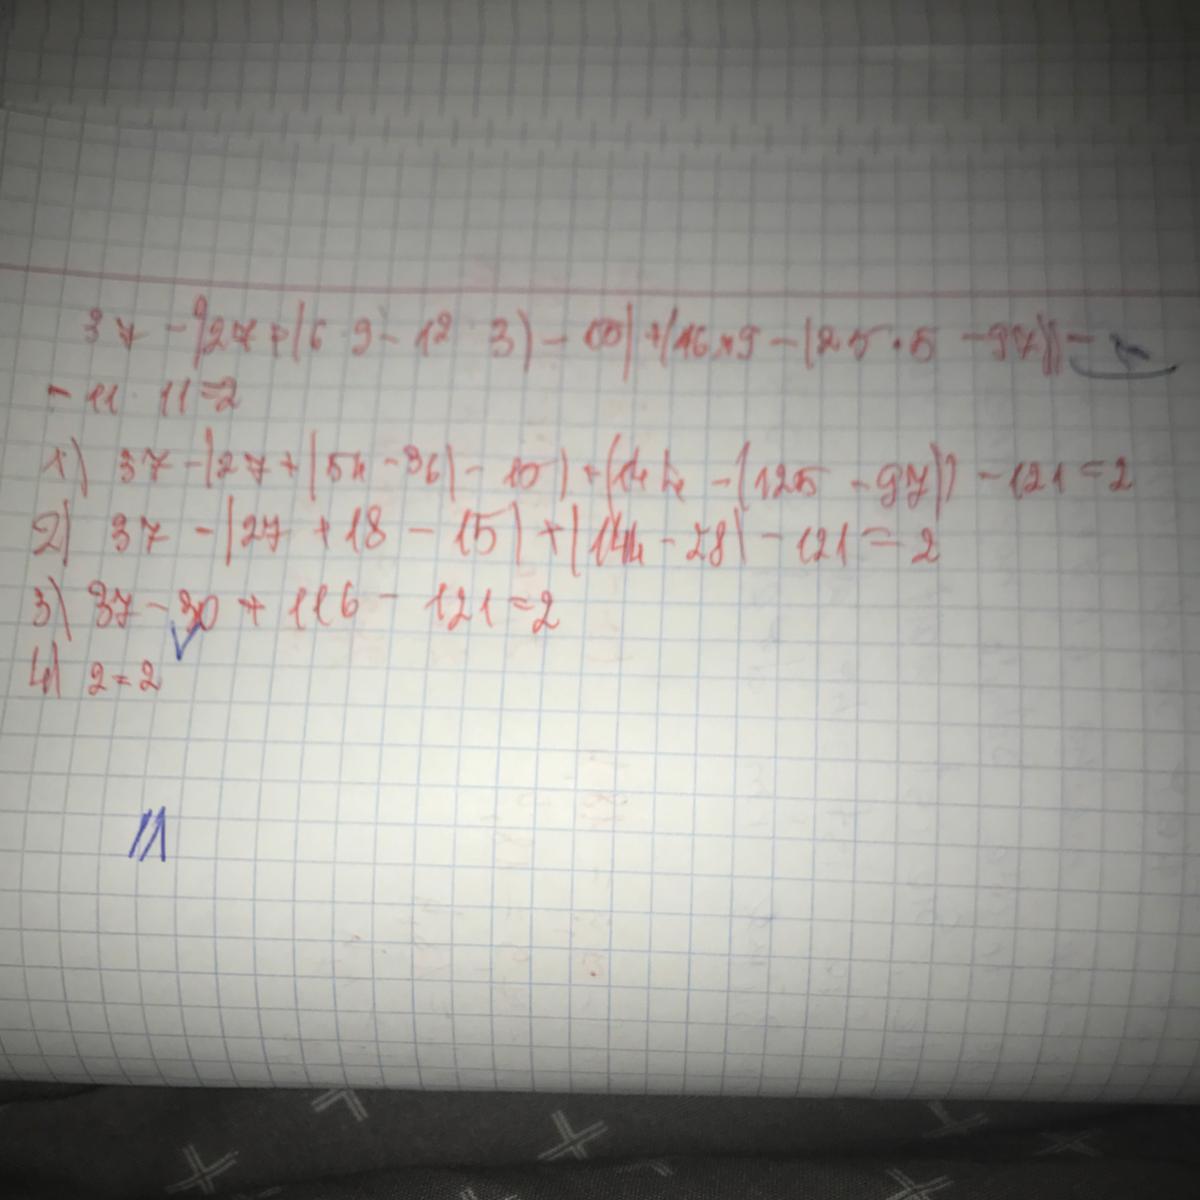 37 - (27 + (6 · 9 - 12 · 3) - 15) + (16 · 9 - (25 · 5 - 97)) -
- 11 · 11 = 2
1) 37 - (27 + (54 - 36) - 15) + (144 - (125 - 97)) - 121 = 2
2) 37 - (27 + 18 - 15) + (144 - 28) - 121 = 2
3) 37 - 30 + 116 - 121 = 2
4) 2 = 2